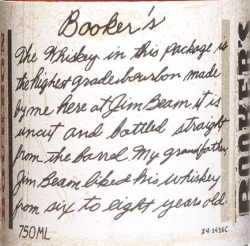 Booker's
The Whiskey in this package is
the highest grade bourbon made
by me here at Jim Beam it is
uncut and bottled straight
from the barrel My grandfather,
Jim Beam liked his whiskey
from six to eight years old
750ML
24-1416C
BOOKER'S